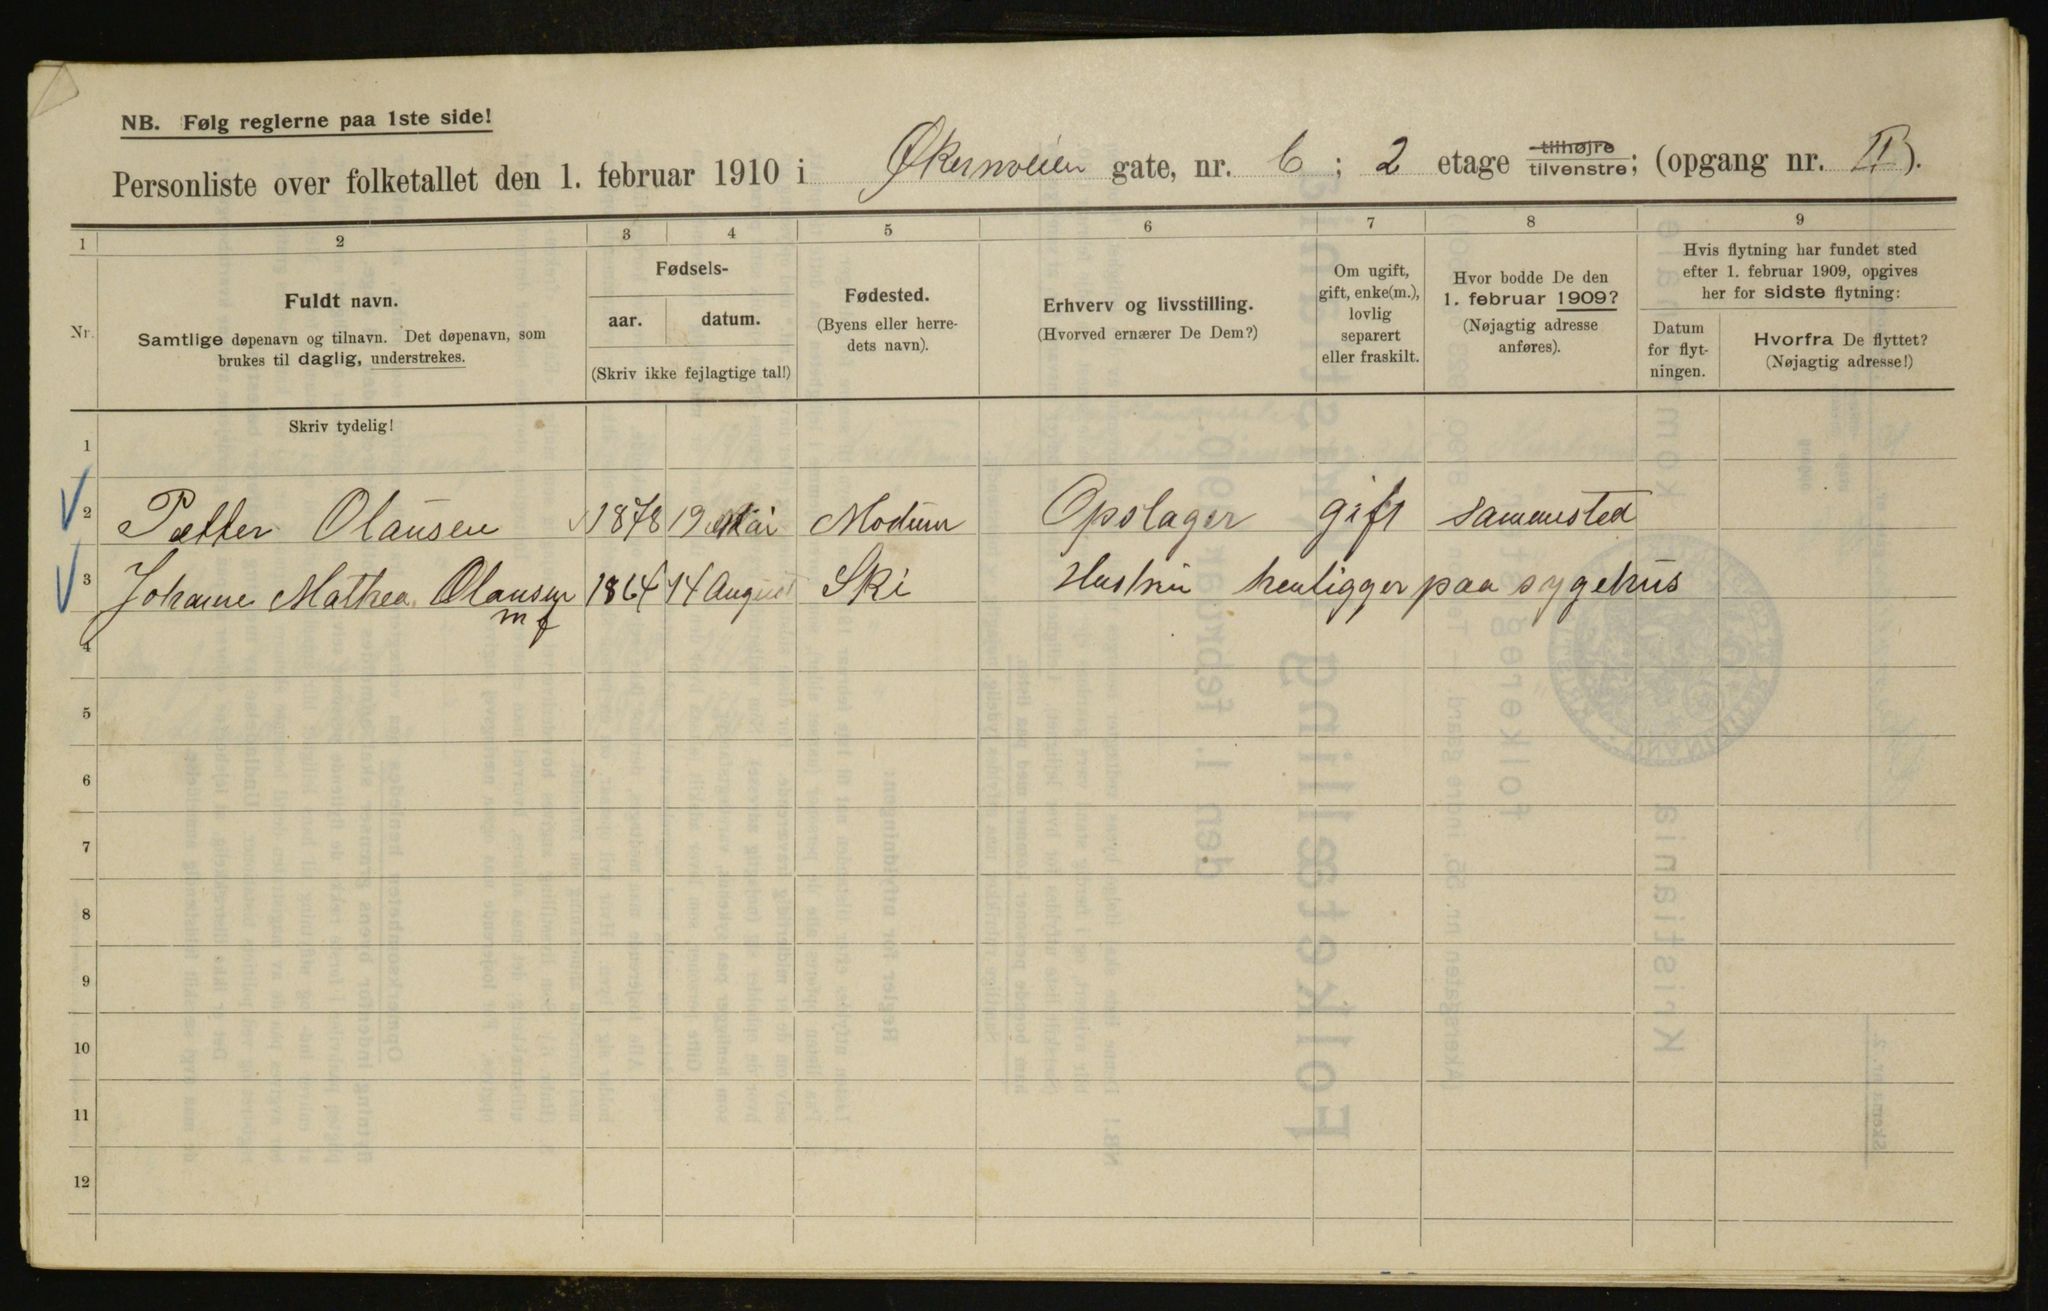 NB. Følg reglerne paa 1ste side!
Personliste over folketallet den 1. februar 1910 i Økernveien gate, nr. 6; 2 etage tilhøjre tilvenstre; (opgang nr. II).
1 2 3 4 5 6 7 8 9
Nr.
Fuldt navn.
Samtlige døpenavn og tilnavn. Det døpenavn, som
brukes til daglig, understrekes.
Fødsels-
aar. datum.
(Skriv ikke fejlagtige tal!)
Fødested.
(Byens eller herre-
dets navn).
Erhverv og livsstilling.
(Hvorved ernærer De Dem?)
Om ugift,
gift, enke(m.),
lovlig
separert
eller fraskilt.
Hvor bodde De den
1. februar 1909?
(Nøjagtig adresse
anføres).
Hvis flytning har fundet sted
efter 1. februar 1909, opgives
her for sidste flytning:
Datum
for flyt-
ningen.
Hvorfra De flyttet?
(Nøjagtig adresse!)
Skriv tydelig!
1
2 Petter Olausen 1878 19 Mai Modum Opslager gift sammested
3 Johanne Mathea Olausen 1864 14 August Ski Hustru henligger paa sygehus
m f
4
5
6
7
8
9
10
11
12